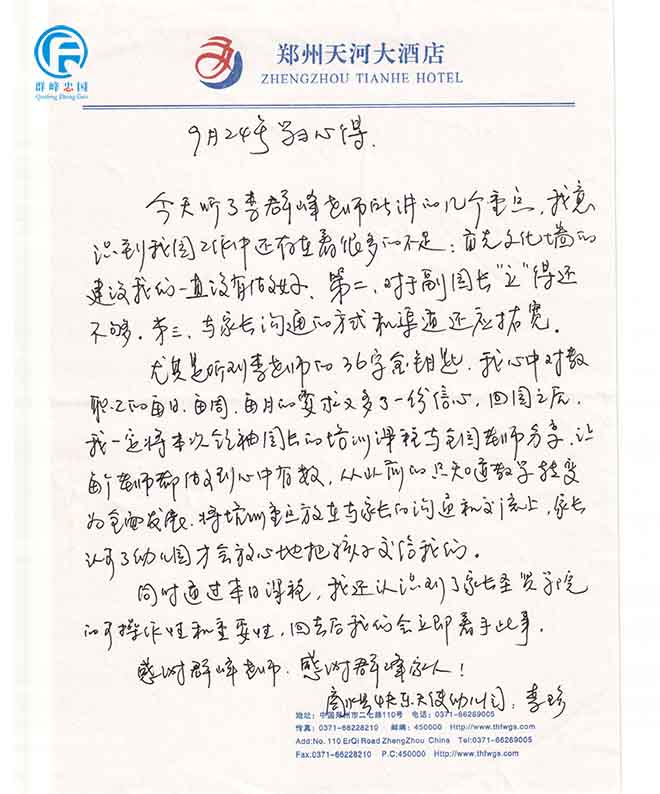 群峰忠国
Qunfeng Zhong Guo
郑州天河大酒店
ZHENGZHOU TIANHE HOTEL
9月24号学习心得.
今天听了李群峰老师所讲的几个重点，我意
识到我园工作中还存在着很多的不足：首先文化墙的
建设我们一直没有做好、第二、对于副园长“立”得还
不够。第三、与家长沟通的方式和渠道还应拓宽。
尤其是听到李老师的36字金钥匙，我心中对教
职工的每日、每周、每月的要求又多了一份信心，回园之后，
我一定将本次领袖园长的培训课程与全园老师分享，让
每个老师都做到心中有数，从以前的只知道教学转变
为全面发展、将培训重点放在与家长的沟通和交流上，家长
认可了幼儿园才会放心地把孩子交给我们。
同时通过本日课程，我还认识到了家长圣贤学院
的可操作性和重要性，回去后我们会立即着手此事。
感谢群峰老师、感谢群峰家人！
商水县快乐天使幼儿园：李珍
地址：中国郑州市二七路110号 电话：0371-66269005
传真：0371-66228210 邮编：450000 Http://www.thfwgs.com
Add:No. 110 ErQi Road ZhengZhou China Tel:0371-66269005
Fax:0371-66228210 P.C:450000 Http://www.thfwgs.com